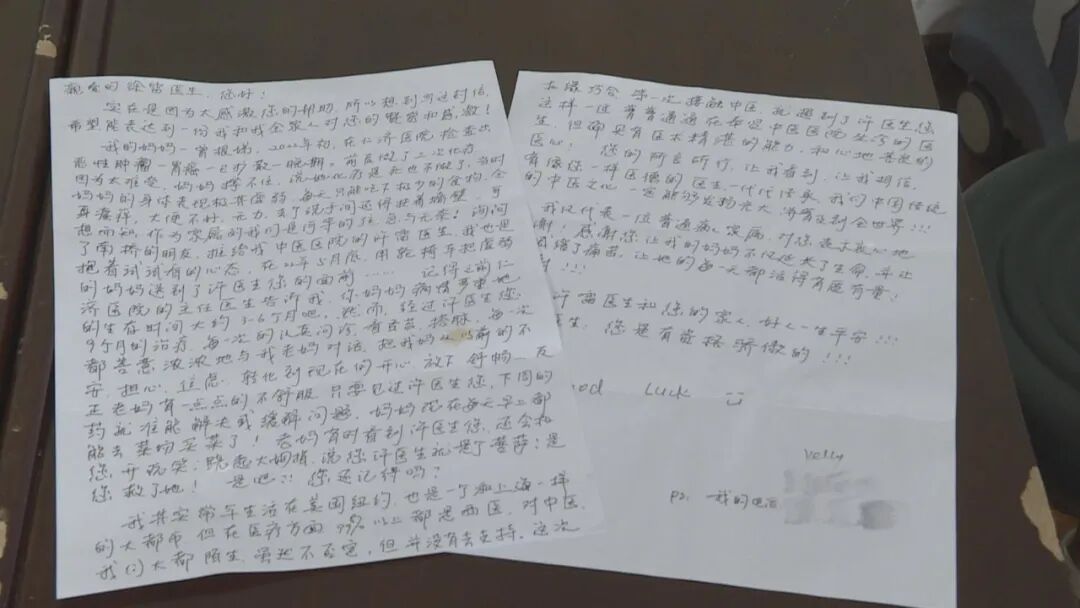 亲爱的徐雷医生，您好！
实在是因为太感激您的帮助，所以想到写这封信，
希望能表达到一份我和我全家人对您的赞赏和感激！
我的妈妈一曾根娣，2022年初，在仁济医院检查出
恶性肿瘤一胃癌一已扩散一晚期。前后做了二次化疗，
因为太难受，妈妈撑不住，说她死也不做了，当时
妈妈的身体表现极其虚弱，每天只能吃下极少的食物，全
身发痒，大便不好，无力，去了洗手间还得扶着墙壁，可
想而知，作为家属的我们是何等的狂急与无奈！询问
了南桥的朋友，推给我中医医院的许雷医生，我也是
抱着试试看的心态，在22年5月底，用轮椅车把虚弱
的妈妈送到了许医生您的面前…… 记得之前仁
济医院的主任医生告诉我，你妈妈病情严重地
的生存时间大约3-6个月吧，然而，经过许医生您
9个月的治疗，每一次的认真问诊，看舌苔，搭脉，每一次
都善意浓浓地与我老妈对话，把我妈从以前的不
安，担心，焦虑，转化到现在的开心，放下，舒畅一反
正老妈有一点点的不舒服，只要见过许医生您，下周的
药就准能解决或缓解问题，妈妈现在每天早上都
能去菜场买菜了！老妈有时看到许医生您，还会和
您开玩笑：跷起大拇指，说您许医生就是个菩萨！是
您救了她！ 是吧！！您还记得吗？
我其实常年生活在美国纽约，也是一个如上海一样
的大都市，但在医疗方面99%以上都是西医，对中医，
我们大都陌生，虽然不否定，但并没有去支持。这次
机缘巧合，第一次接触中医，就遇到了许医生您
这样一位普普通通在奉贤中医医院坐诊的医
生，但确具有医术精湛的能力，和心地善良的
医心！ 您的所言所行，让我看到，让我相信，
有像您一样医德的医生，一代代传承，我们中国传统
的中医文化一定能够发扬光大，滋养及到全世界！！！
我仅代表一位普通病人家属，对您表示衷心地
谢！感谢您让我的妈妈不仅延长了生命，并让
缩了痛苦，让她的每一天都活得有质有量！
！！！
许雷医生和您的家人，好人一生平安！！！
医生，您是有资格骄傲的！！！
ood Luck
Velly
PS：我的电话